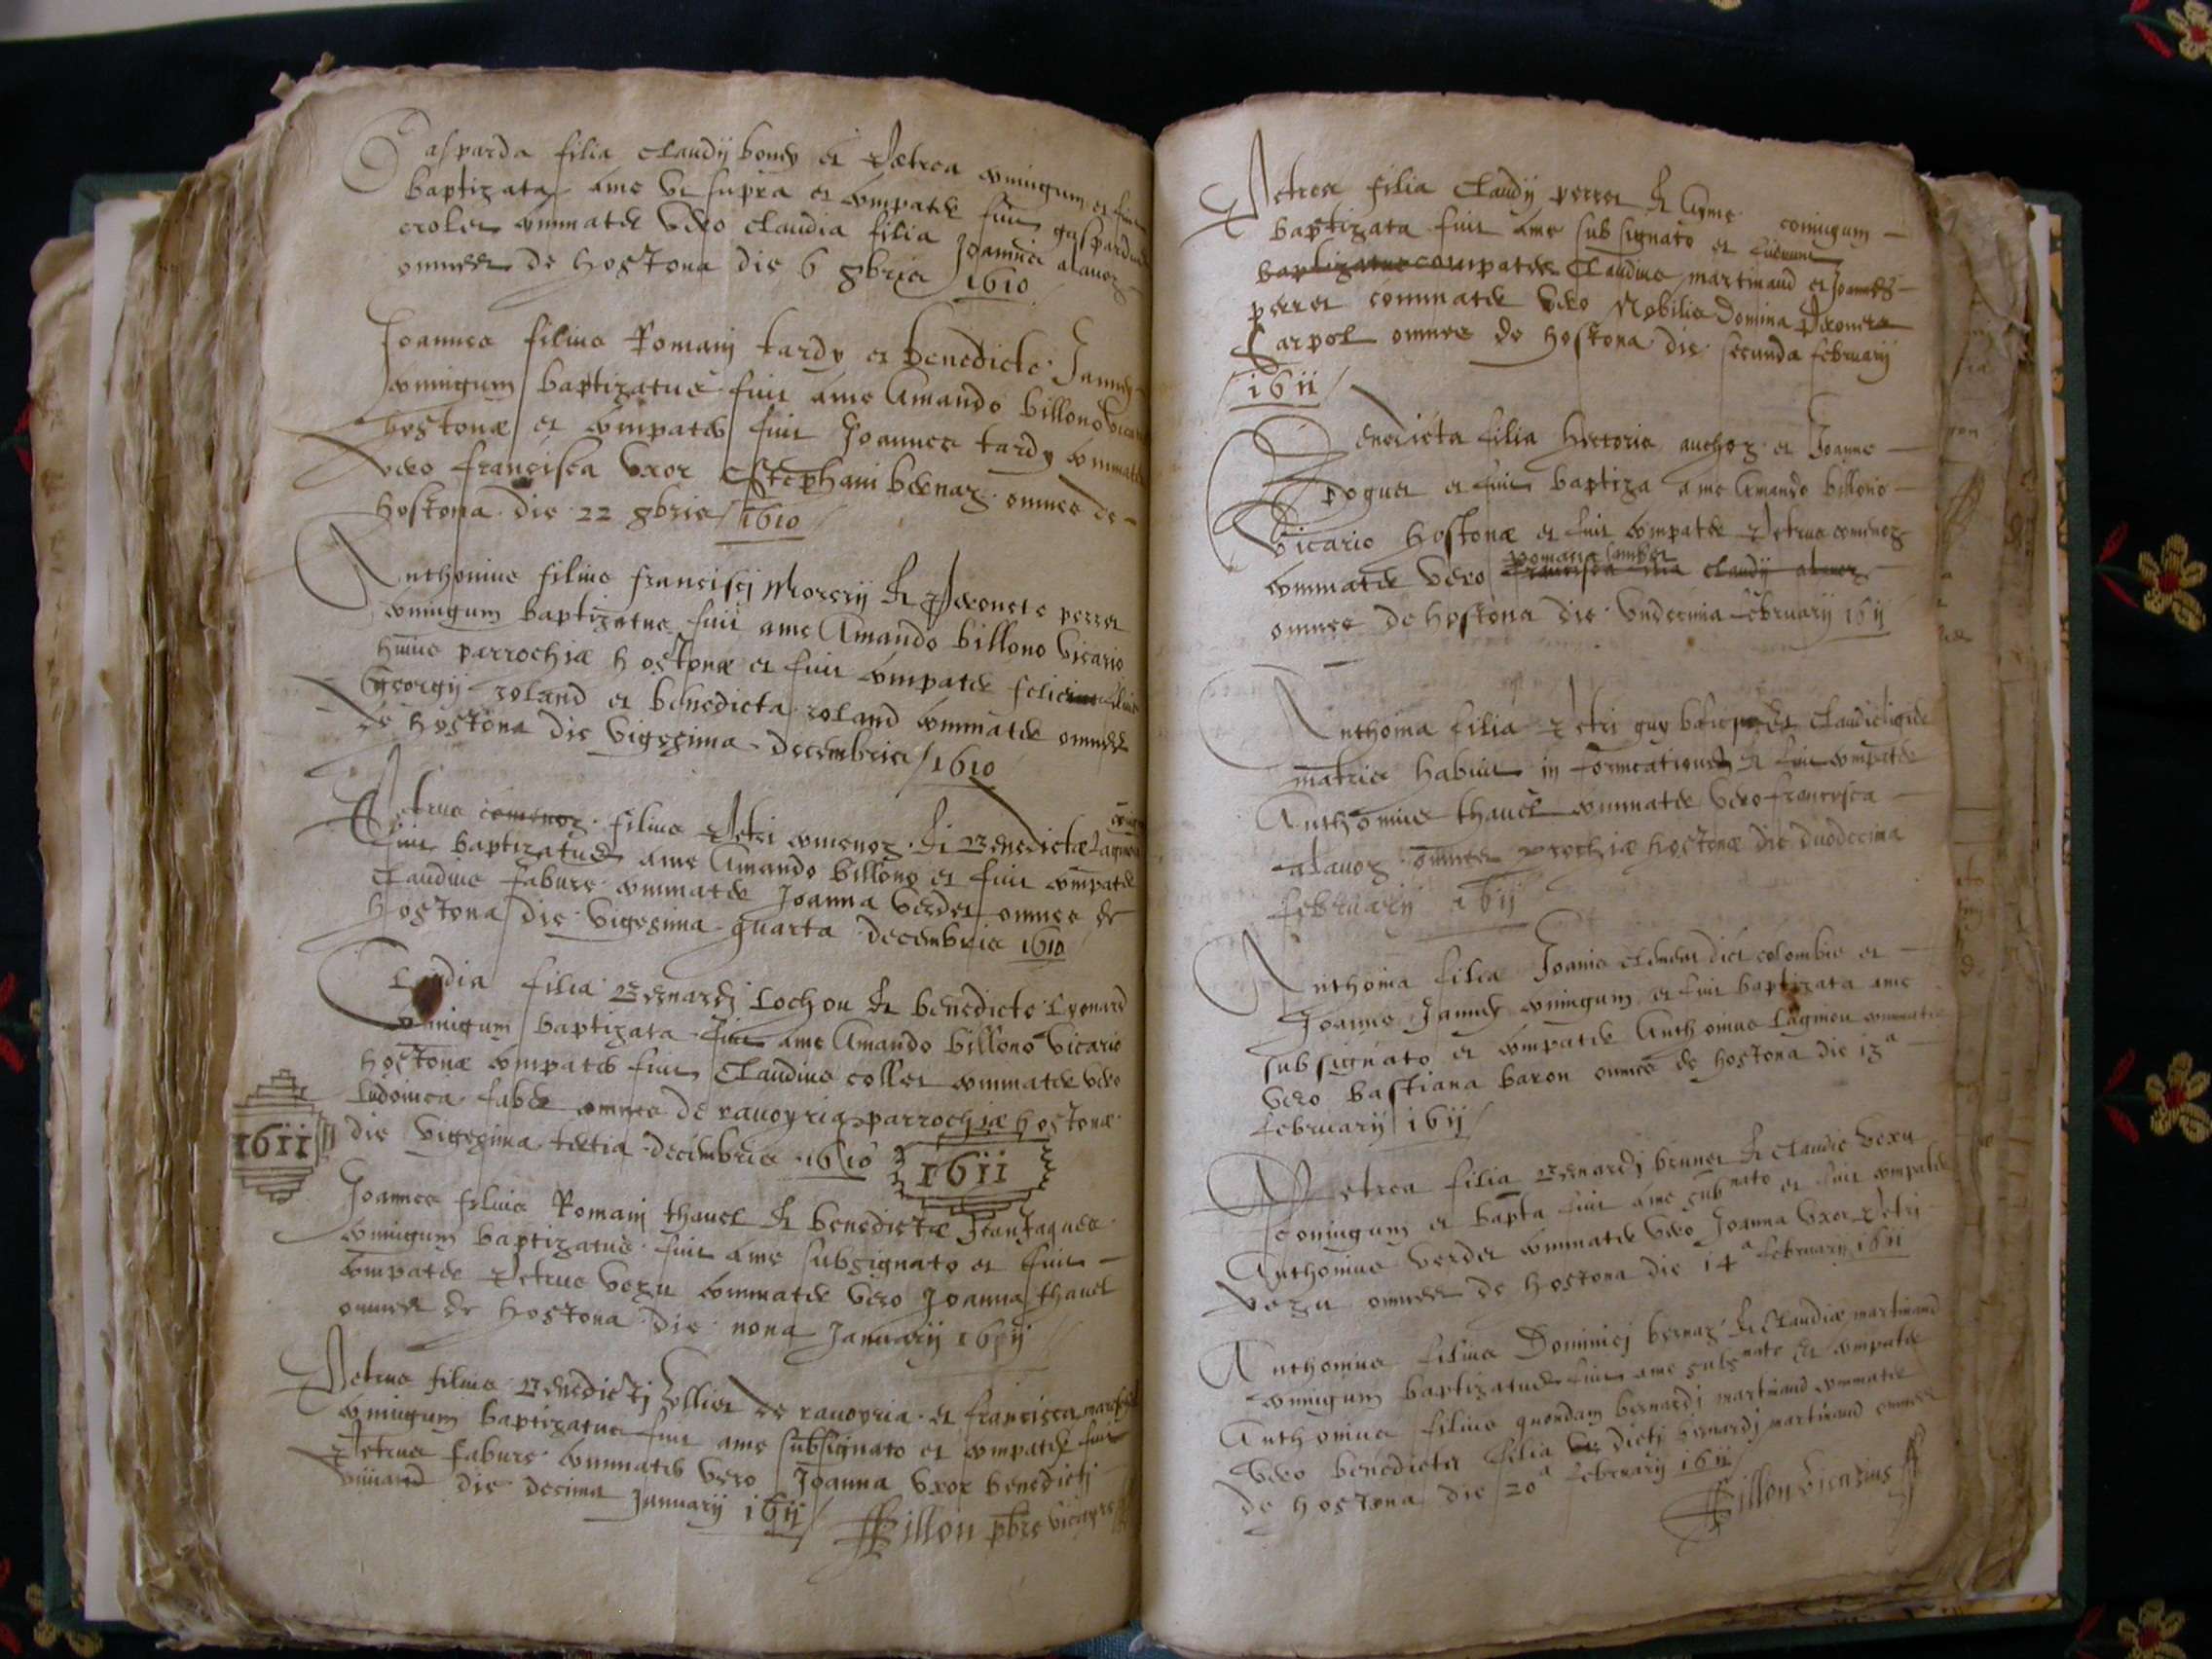 Gasparda filia claudij boney et Petrea coniugum et fuit
baptizata a me ut supra et compater fuit gaspardus
croler commater vero claudia filia Joannis alavoz
omnes de hostona die 6 8bris 1610
Joannes filius Romanj tardy et benedicte Janney
coniugum baptizatus fuit a me Amando billono vicario
hostonæ et compater fuit Joannes tardy commater
vero francisca uxor Stephani bernaz omnes de
hostona die 22 8bris 1610
Anthonius filius franciscj Morerij et Peronete perret
coniugum baptizatus fuit a me Amando billono vicario
huius parrochiæ hostonæ et fuit compater filius
Georgij roland et benedicta roland commater omnes
de hostona die vigesima decembris 1610
Petrus comenoz filius Petri comenoz et Benedictæ Lagnieu
fuit baptizatus a me Amando billono et fuit compater
claudius fabure commater Joanna verder omnes de
hostona die vigesima quarta decembris 1610
Claudia filia Bernardj Lochon et benedicte Lyonard
coniugum baptizata fuit a me Amando billono vicario
hostonæ compater fuit Claudius collet commater vero
Ludovica faber omnes de ravoyria parrochiæ hostonæ
die vigesima tertia decembris 1610
1611
1611
Joannes filius Romanj thavel et benedictæ Jeanjaques
coniugum baptizatus fuit a me subsignato et fuit
compater Petrus vezu commater vero Joanna thavel
omnes de hostona die nona Januarij 1611
Petrus filius Benedictj Collier de ravoyria et francisca
coniugum baptizatus fuit a me subsignato et compater fuit
Petrus fabure commater vero Joanna uxor benedictj
die decima Januarij 1611
Billon pbre vicayre
Petrea filia Claudij perret et Ayme coniugum
baptizata fuit a me subsignato et fuerunt
baptizatus compater Claudius martinaud et Joannes
perret commater vero Nobilis Domina Peroneta
Carpol omnes de hostona die secunda februarij
1611
Benedicta filia hectoris auchoz et Joanne
Poguet et fuit baptiza a me Amando billono
vicario hostonæ et fuit compater Petrus comenoz
romana lambert
commater vero francisca filia claudij alavoz
omnes de hostona die undecima februarij 1611
Anthonia filia Petri guy et Claudie
matris habuit in fornicatione et fuit compater
Anthonius thavel commater vero francisca
alavoz omnes parochiæ hostonæ die duodecima
februarij 1611
Anthonia filia Joanis clement dict colombie et
Joanne Janney coniugum et fuit baptizata a me
subsignato et compater Anthonius Lagnieu commater
vero bastiana baron omnes de hostona die 13a
februarij 1611
Petrea filia Bernardj brunet et Claudie vezu
coniugum et bapta fuit a me subnato et fuit compater
Anthonius verder commater vero Joanna uxor Petri
vezu omnes de hostona die 14a februarij 1611
Anthonius filius Dominicj bernaz et Claudiæ martinaud
coniugum baptizatus fuit a me subsnato et compater
Anthonius filius quondam bernardj martinaud commater
vero benedicta filia dictj bernardj martinaud omnes
de hostona die 20a februarij 1611
Billon vicarius